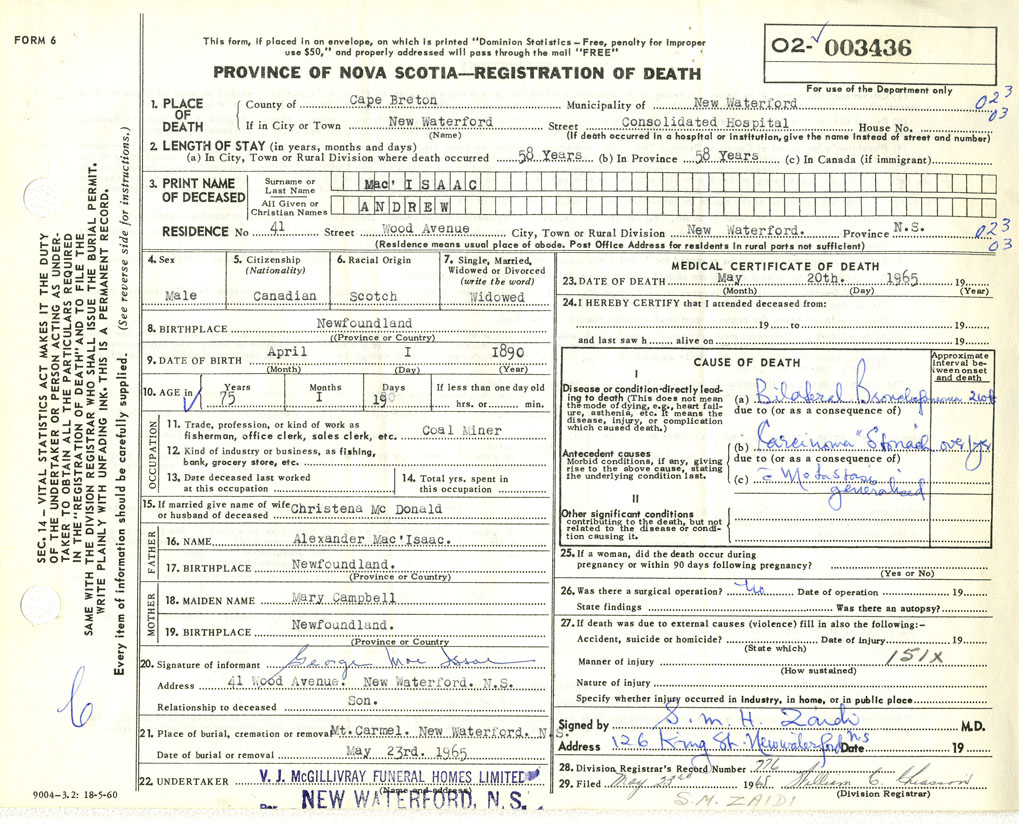 FORM 6
This form, if placed in an envelope, on which is printed "Dominion Statistics – Free, penalty for improper
use $50," and properly addressed will pass through the mail "FREE"
O2- 003436
For use of the Department only
PROVINCE OF NOVA SCOTIA—REGISTRATION OF DEATH
1. PLACE OF DEATH County of Cape Breton Municipality of New Waterford 023
If in City or Town New Waterford Street Consolidated Hospital House No. 03
(Name) (If death occurred in a hospital or institution, give the name instead of street and number)
2. LENGTH OF STAY (in years, months and days)
(a) In City, Town or Rural Division where death occurred 58 Years (b) In Province 58 Years (c) In Canada (if immigrant)
3. PRINT NAME OF DECEASED Surname or Last Name Mac'ISAAC
All Given or Christian Names ANDREW
RESIDENCE No 41 Street Wood Avenue City, Town or Rural Division New Waterford. Province N.S. 023
(Residence means usual place of abode. Post Office Address for residents in rural parts not sufficient) 03
SEC. 14 – VITAL STATISTICS ACT MAKES IT THE DUTY
OF THE UNDERTAKER OR PERSON ACTING AS UNDER-
TAKER TO OBTAIN ALL THE PARTICULARS REQUIRED
IN THE "REGISTRATION OF DEATH" AND TO FILE THE
SAME WITH THE DIVISION REGISTRAR WHO SHALL ISSUE THE BURIAL PERMIT.
WRITE PLAINLY WITH UNFADING INK. THIS IS A PERMANENT RECORD.
Every item of information should be carefully supplied. (See reverse side for instructions.)
4. Sex Male
5. Citizenship (Nationality) Canadian
6. Racial Origin Scotch
7. Single, Married, Widowed or Divorced (write the word) Widowed
8. BIRTHPLACE Newfoundland
((Province or Country)
9. DATE OF BIRTH April I 1890
(Month) (Day) (Year)
10. AGE in Years 75 Months I Days 19 If less than one day old hrs. or min.
OCCUPATION
11. Trade, profession, or kind of work as
fisherman, office clerk, sales clerk, etc. Coal Miner
12. Kind of industry or business, as fishing,
bank, grocery store, etc.
13. Date deceased last worked
at this occupation
14. Total yrs. spent in
this occupation
15. If married give name of wife
or husband of deceased Christena Mc Donald
FATHER
16. NAME Alexander Mac'Isaac.
17. BIRTHPLACE Newfoundland.
(Province or Country)
MOTHER
18. MAIDEN NAME Mary Campbell
19. BIRTHPLACE Newfoundland.
(Province or Country
20. Signature of informant George Mac Isaac
Address 41 Wood Avenue. New Waterford. N.S.
Relationship to deceased Son.
21. Place of burial, cremation or removal Mt. Carmel. New Waterford. N.S.
Date of burial or removal May 23rd. 1965
22. UNDERTAKER V. J. McGILLIVRAY FUNERAL HOMES LIMITED
(Name and address)
Per NEW WATERFORD, N. S.
9004-3.2: 18-5-60
MEDICAL CERTIFICATE OF DEATH
23. DATE OF DEATH May 20th. 1965 19
(Month) (Day) (Year)
24. I HEREBY CERTIFY that I attended deceased from:
19 to 19
and last saw h alive on 19
CAUSE OF DEATH
Approximate interval between onset and death
I
Disease or condition directly lead-
ing to death (This does not mean
the mode of dying, e.g., heart fail-
ure, asthenia, etc. It means the
disease, injury, or complication
which caused death.)
(a) Bilateral
due to (or as a consequence of)
Antecedent causes
Morbid conditions, if any, giving
rise to the above cause, stating
the underlying condition last.
(b) Carcinoma Stomach over 1 yr
due to (or as a consequence of)
(c) c Metastasis
generalised
II
Other significant conditions
contributing to the death, but not
related to the disease or condi-
tion causing it.
25. If a woman, did the death occur during
pregnancy or within 90 days following pregnancy?
(Yes or No)
26. Was there a surgical operation? No Date of operation 19
State findings Was there an autopsy?
27. If death was due to external causes (violence) fill in also the following:–
Accident, suicide or homicide? Date of injury 19
(State which)
Manner of injury 151X
(How sustained)
Nature of injury
Specify whether injury occurred in industry, in home, or in public place
Signed by S. M. H. Zaidi M.D.
Address 126 King St. New Waterford NS Date 19
28. Division Registrar's Record Number 776
29. Filed May 23rd 1965 William C. Chiasson
(Division Registrar)
S.M. ZAIDI